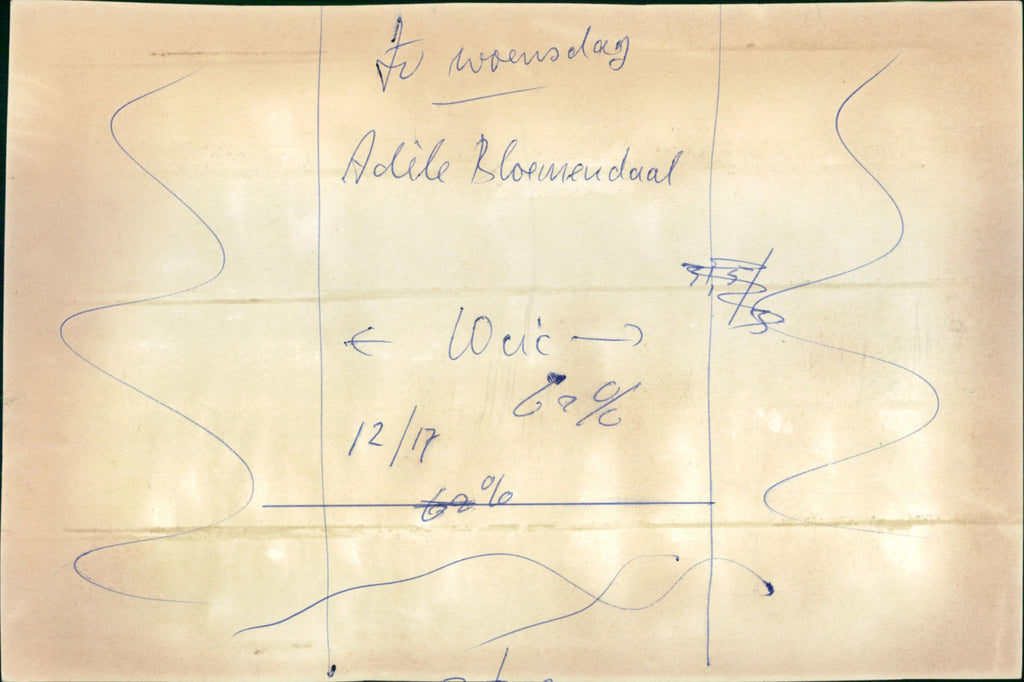 Fr woensdag
Adèle Bloemendaal
← 10 cic →
62%
12/17
62%